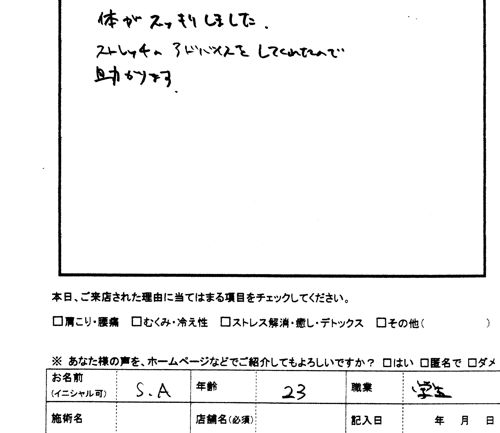 体がスッキリしました.
ストレッチのアドバイスをしてくれたので
助かります.
本日、ご来店された理由に当てはまる項目をチェックしてください。
□肩こり・腰痛 □むくみ・冷え性 □ストレス解消・癒し・デトックス □その他( )
※ あなた様の声を、ホームページなどでご紹介してもよろしいですか? □はい □匿名で □ダメ
お名前 (イニシャル可) S.A 年齢 23 職業 学生
施術名 店舗名(必須) 記入日 年 月 日